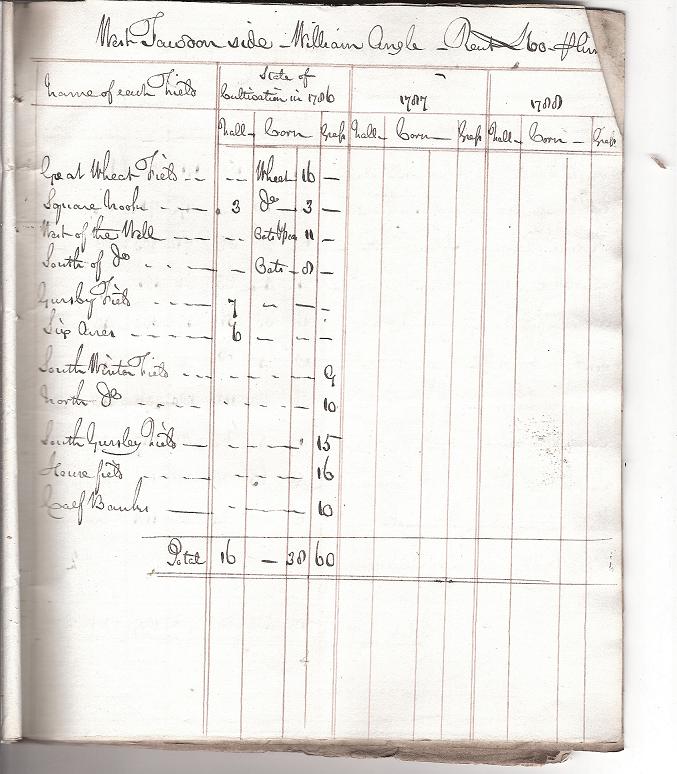 West Tawsoon side - William Angle - Rent £60 -
Name of each Field State of Cultivation in 1786 1787 1788
Fall- Corn Grass Fall- Corn Grass Fall- Corn - Grass
Great Wheat Field - - - - Wheat 16 -
Square Nook - - - 3 Do 3 -
West of the Well - - - - Oats & Peas 11 -
South of Do - - - - Oats - 8 -
Gursby Field - - - - 7 - - -
Six Acres - - - - - 6 - - -
South Winton Field - - - - - - 9
North Do - - - - - - - 10
South Gursley Field - - - - 15
House field - - - - - 16
Calf Banks - - - - 10
Total 16 - 38 60